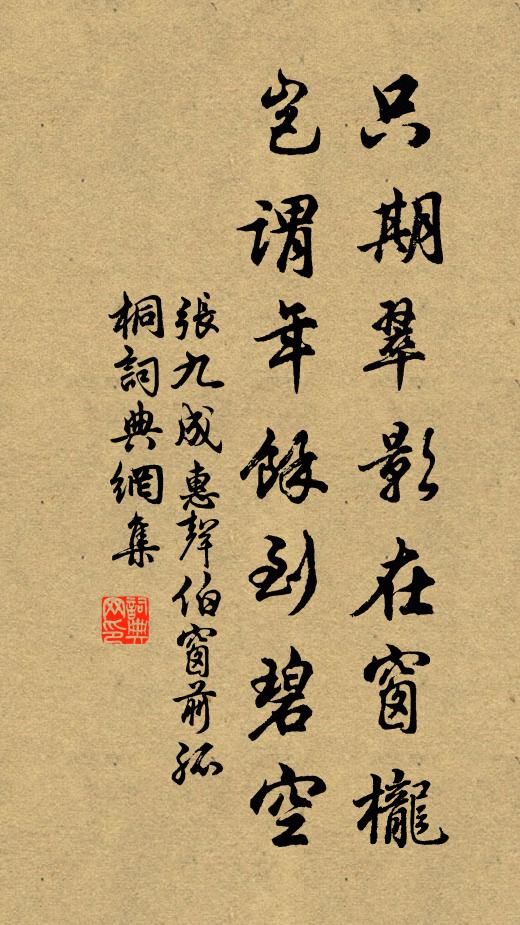 只期翠影在窗櫳
豈謂年餘到碧空
張九成惠聲伯窗前孤
桐詞典網集
詞典
网印